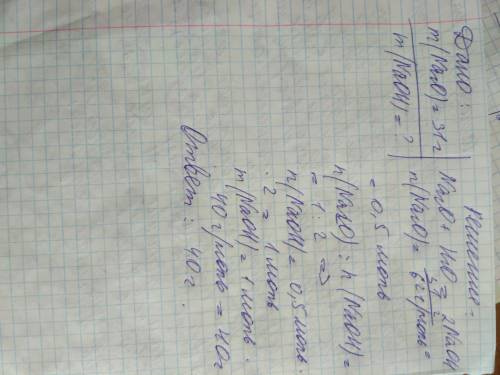 Дано:
m(Na₂O) = 31г
m(NaOH) = ?
Решение:
Na₂O + H₂O = 2NaOH
n(Na₂O) = 31 г / 62 г/моль =
= 0,5 моль
n(Na₂O) : n(NaOH) =
= 1 : 2 =>
n(NaOH) = 0,5 моль ·
· 2 = 1 моль
m(NaOH) = 1 моль ·
40 г/моль = 40г
Ответ: 40г.